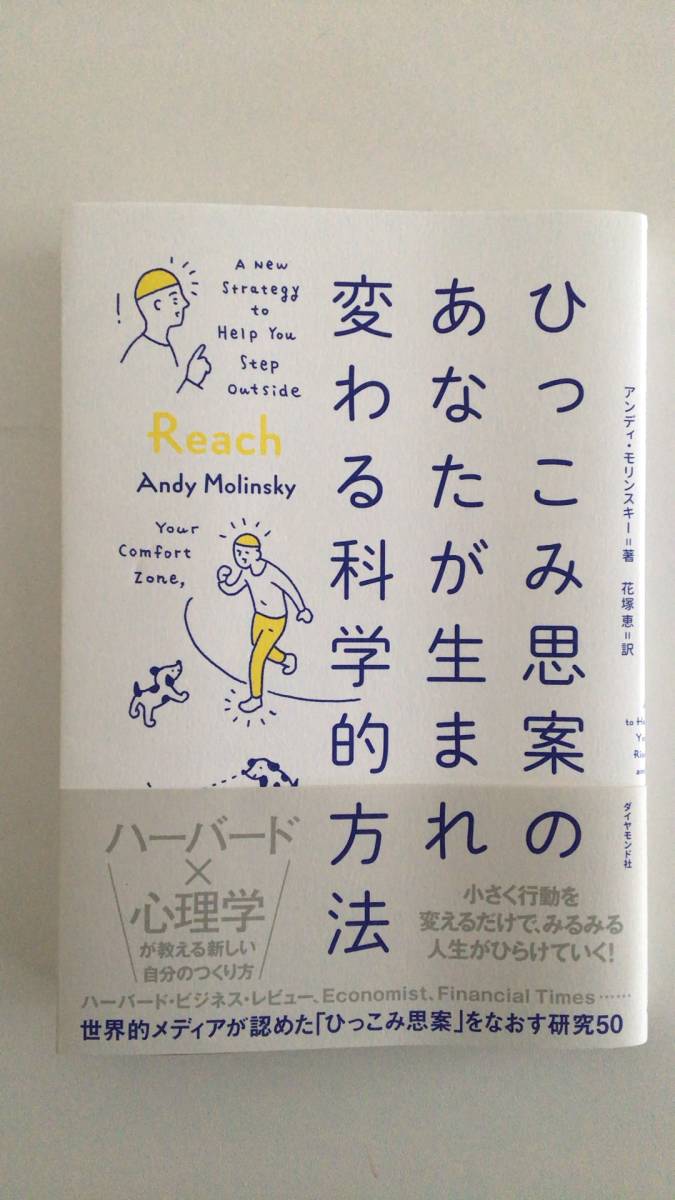 ひっこみ思案の
あなたが生まれ
変わる科学的方法
アンディ・モリンスキー=著
花塚恵=訳
ダイヤモンド社
A New
Strategy
to
Help You
Step
Outside
!
Reach
Andy Molinsky
Your
Comfort
Zone,
ハーバード
×
心理学
が教える新しい
自分のつくり方
小さく行動を
変えるだけで、みるみる
人生がひらけていく!
ハーバード・ビジネス・レビュー、Economist、Financial Times……
世界的メディアが認めた「ひっこみ思案」をなおす研究50